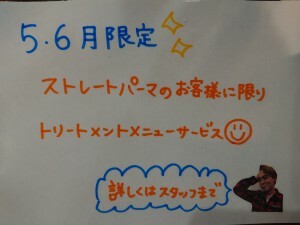 5.6月限定
ストレートパーマのお客様に限り
トリートメントメニューサービス
詳しくはスタッフまで